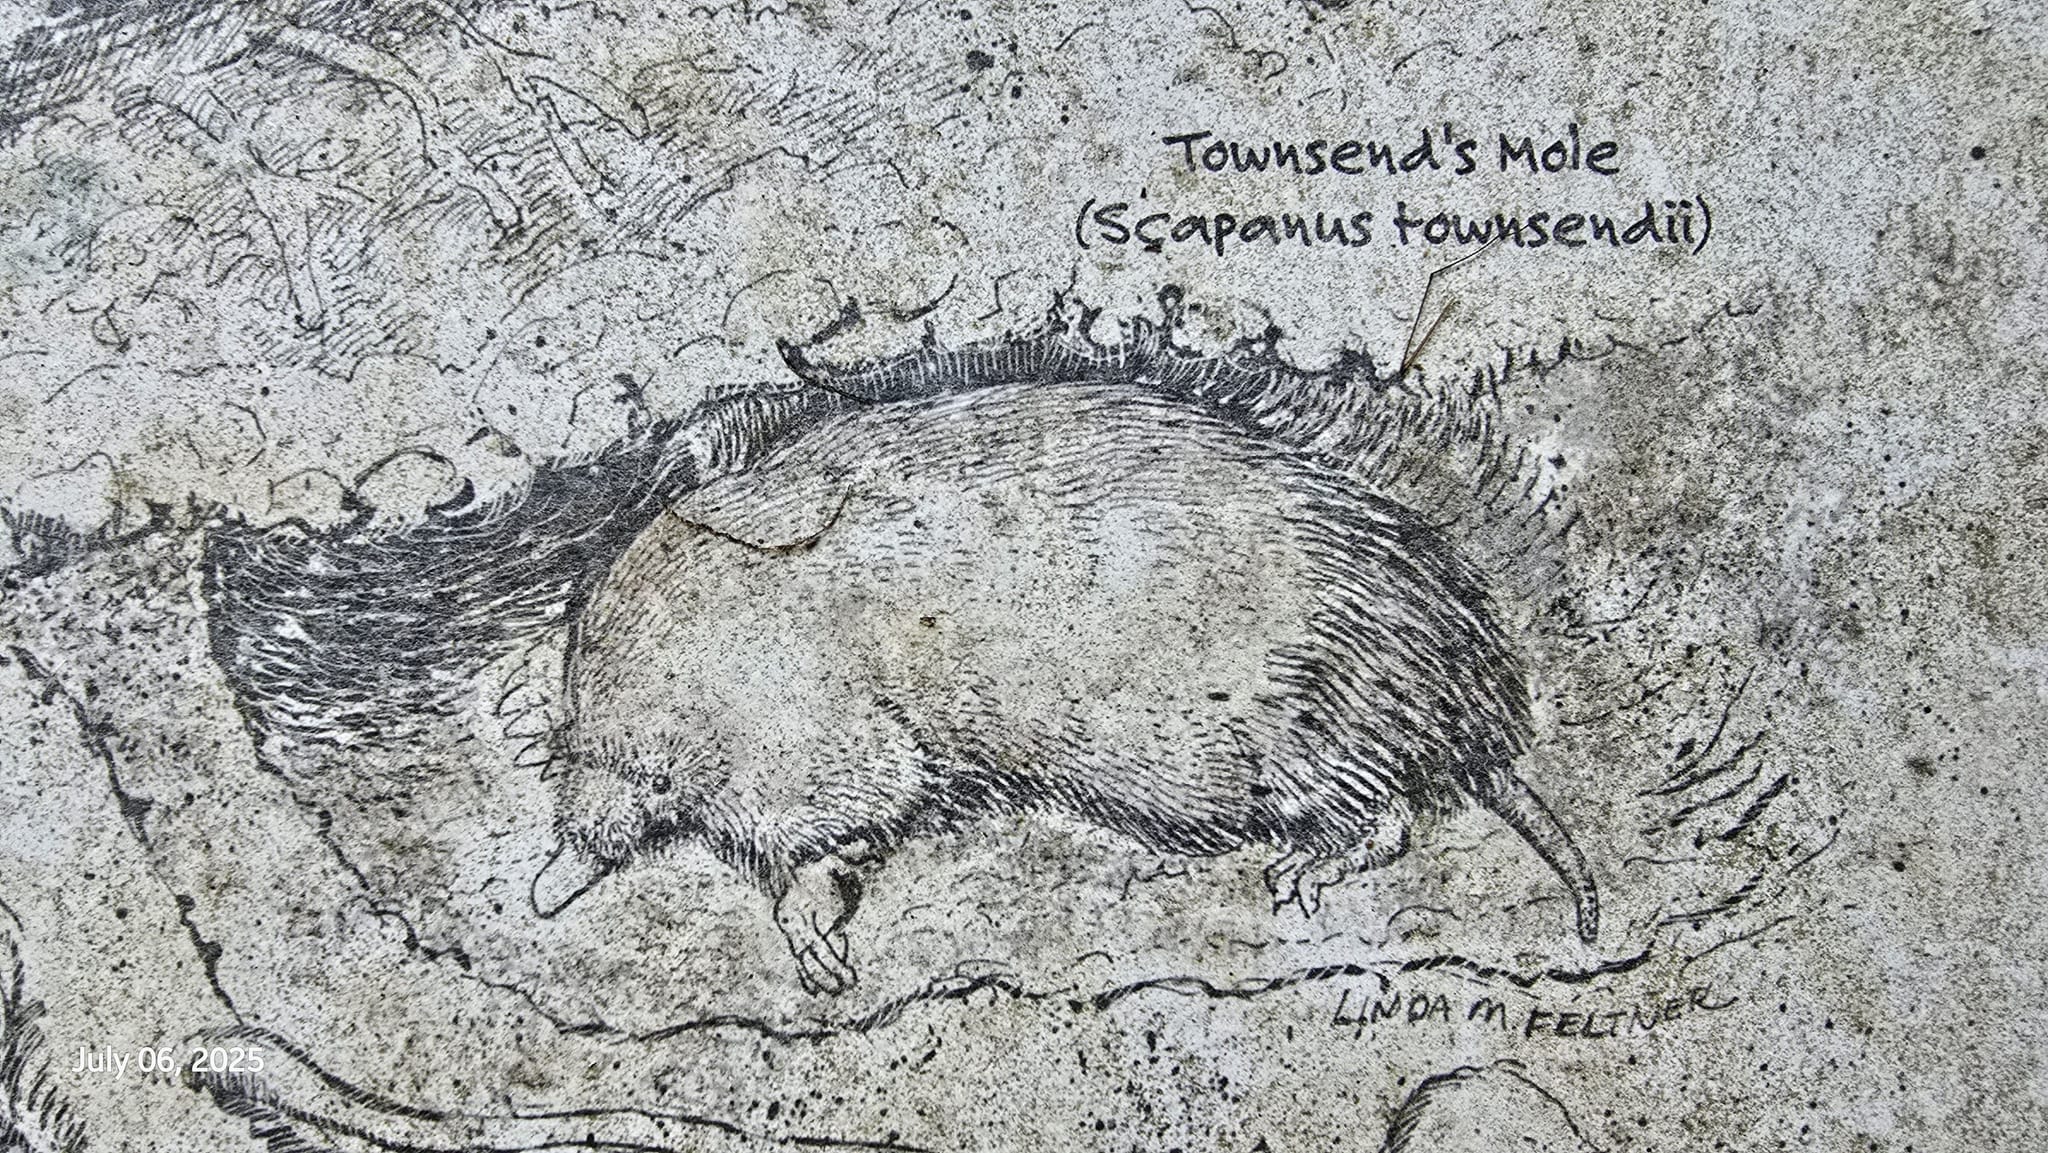 Townsend's Mole
(Scapanus townsendii)
LINDA M. FELTNER
July 06, 2025